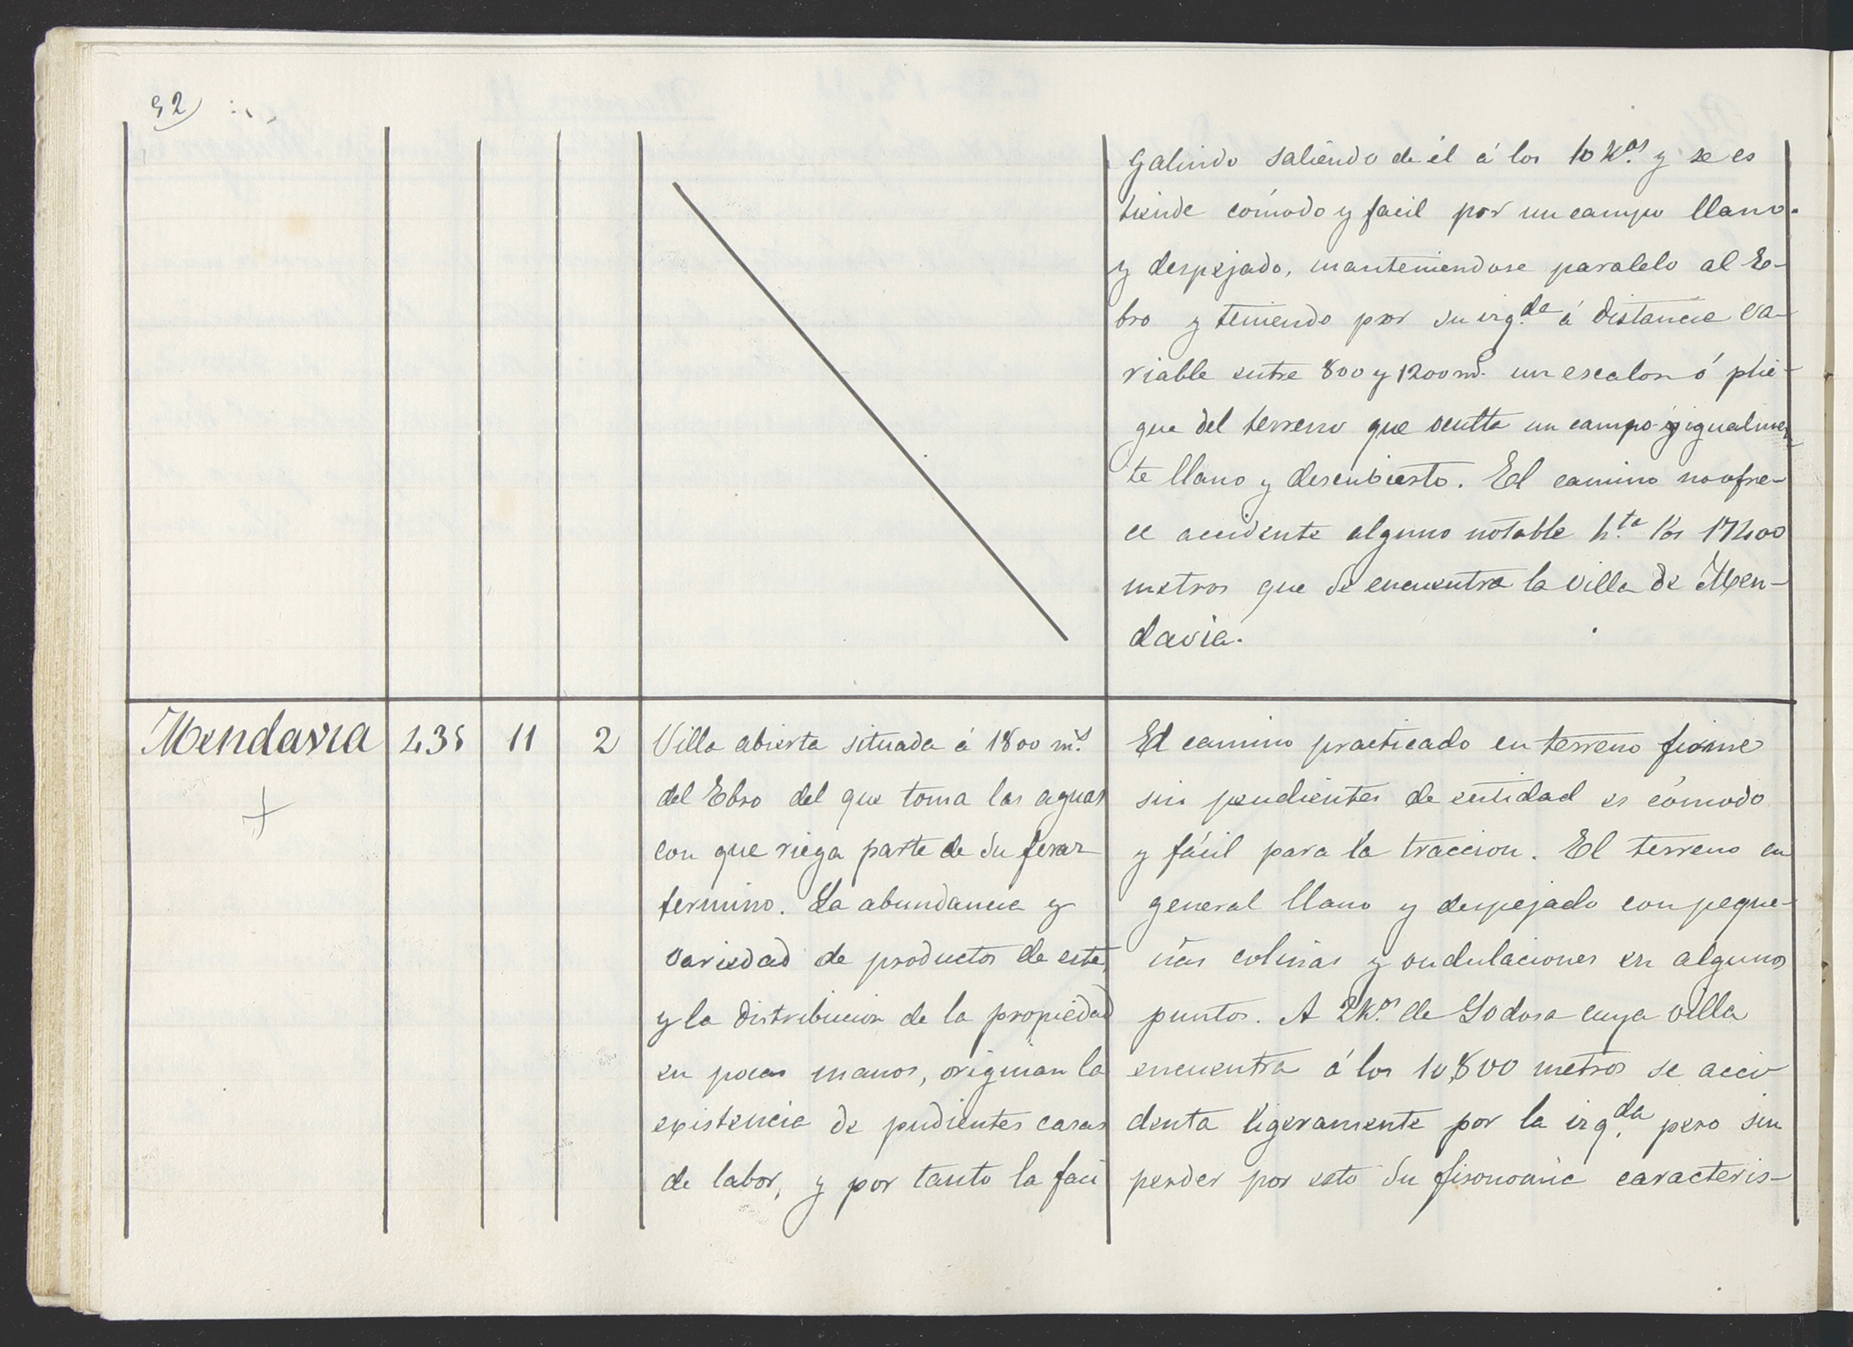 92
Galindo saliendo de él á los 10 K.os y se es
tiende cómodo y facil por un campo llano
y despejado, manteniendose paralelo al E-
bro y teniendo por su izq.da á distancia va-
riable entre 800 y 1200 m.s un escalon ó plie-
gue del terreno que oculta un campo igualmen
te llano y descubierto. El camino no ofre-
ce accidente alguno notable h.ta los 17400
metros que se encuentra la villa de Men-
davia.
Mendavia 435 11 2
Villa abierta situada á 1800 m.s
del Ebro del que toma las aguas
con que riega parte de su feraz
termino. La abundancia y
variedad de productos de este,
y la distribucion de la propiedad
en pocas manos, originan la
existencia de pudientes casas
de labor, y por tanto la faci
El camino practicado en terreno firme
sin pendientes de entidad es cómodo
y fácil para la traccion. El terreno en
general llano y despejado con peque-
ñas colinas y ondulaciones en algunos
puntos. A 2 K.os de Lodosa cuya villa
encuentra á los 10,800 metros se acci
denta ligeramente por la izq.da pero sin
perder por esto su fisonomia caracteris-